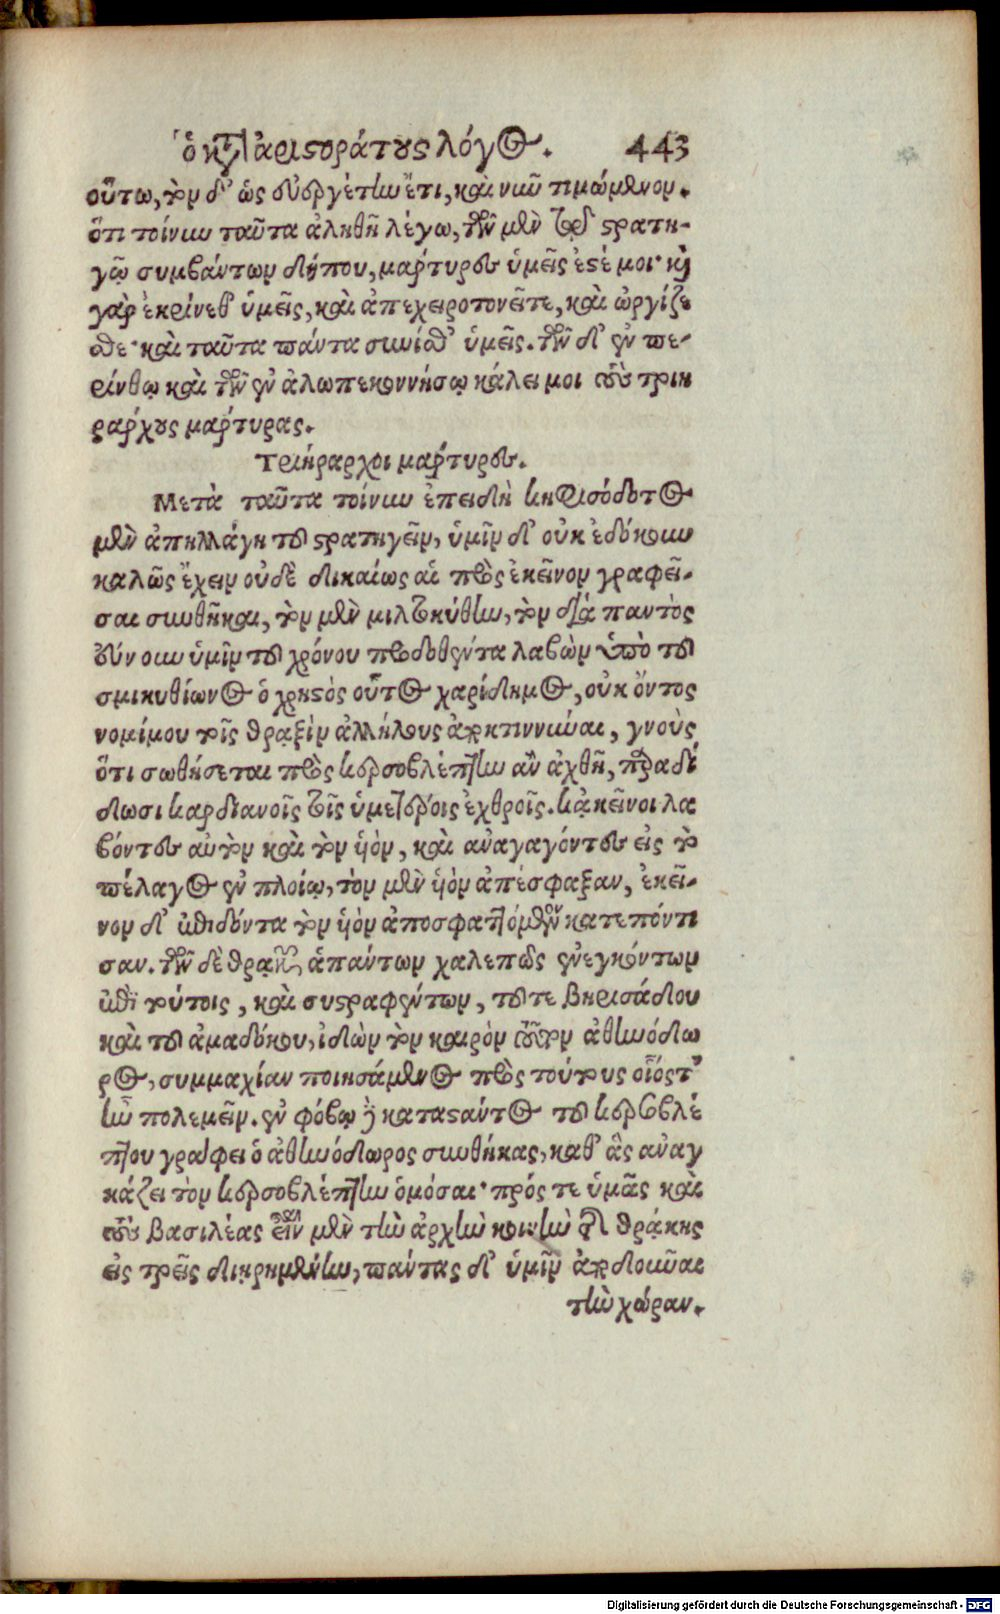 ὁ κατ' ἀριστοκράτους λόγος. 443
οὕτω, τὸν δ' ὡς εὐεργέτην ἔτι, καὶ νῦν τιμώμενον.
ὅτι τοίνυν ταῦτα ἀληθῆ λέγω, τῶν μὲν τῷ στρατη-
γῷ συμβάντων δήπου, μάρτυρες ὑμεῖς ἐστέ μοι· καὶ
γὰρ ἐκρίνεθ' ὑμεῖς, καὶ ἀπεχειροτονεῖτε, καὶ ὠργίζε
σθε· καὶ ταῦτα πάντα σύνισθ' ὑμεῖς. τῶν δ' ἐν πε-
ρίνθῳ καὶ τῶν ἐν ἀλωπεκοννήσῳ κάλει μοι τοὺς τριη
ράρχους μάρτυρας.
Τριήραρχοι μάρτυρες.
Μετὰ ταῦτα τοίνυν ἐπειδὴ κηφισόδοτος
μὲν ἀπηλλάγη τοῦ στρατηγεῖν, ὑμῖν δ' οὐκ ἐδόκουν
καλῶς ἔχειν οὐδὲ δικαίως αἱ πρὸς ἐκεῖνον γραφεῖ-
σαι συνθῆκαι, τὸν μὲν μιλτοκύθην, τὸν διὰ παντὸς
εὔνουν ὑμῖν τοῦ χρόνου προδοθέντα λαβὼν ὑπὸ τοῦ
σμικυθίωνος ὁ χρηστὸς οὗτος χαρίδημος, οὐκ ὄντος
νομίμου τοῖς θρᾳξὶν ἀλλήλους ἀποκτιννύναι, γνοὺς
ὅτι σωθήσεται πρὸς κερσοβλέπτην ἂν ἀχθῇ, παραδί
δωσι καρδιανοῖς τοῖς ὑμετέροις ἐχθροῖς. κἀκεῖνοι λα
βόντες αὐτὸν καὶ τὸν ὑὸν, καὶ ἀναγαγόντες εἰς τὸ
πέλαγος ἐν πλοίῳ, τὸν μὲν ὑὸν ἀπέσφαξαν, ἐκεῖ-
νον δ' ἐπιδόντα τὸν ὑὸν ἀποσφαττόμενον κατεπόντι
σαν. τῶν δὲ θρᾳκῶν ἁπάντων χαλεπῶς ἐνεγκόντων
ἐπὶ τούτοις, καὶ συστραφέντων, τοῦ τε βηρισάδου
καὶ τοῦ ἀμαδόκου, ἰδὼν τὸν καιρὸν τοῦτον ἀθηνόδω
ρος, συμμαχίαν ποιησάμενος πρὸς τούτους οἷός τ'
ἦν πολεμεῖν. ἐν φόβῳ δὲ καταστάντος τοῦ κερσοβλέ
πτου γράφει ὁ ἀθηνόδωρος συνθήκας, καθ' ἃς ἀναγ
κάζει τὸν κερσοβλέπτην ὀμόσαι· πρός τε ὑμᾶς καὶ
τοὺς βασιλέας εἶναι μὲν τὴν ἀρχὴν κοινὴν τῆς θρᾴκης
εἰς τρεῖς διῃρημένην, πάντας δ' ὑμῖν ἀποδοῦναι
τὴν χώραν.
Digitalisierung gefördert durch die Deutsche Forschungsgemeinschaft - DFG